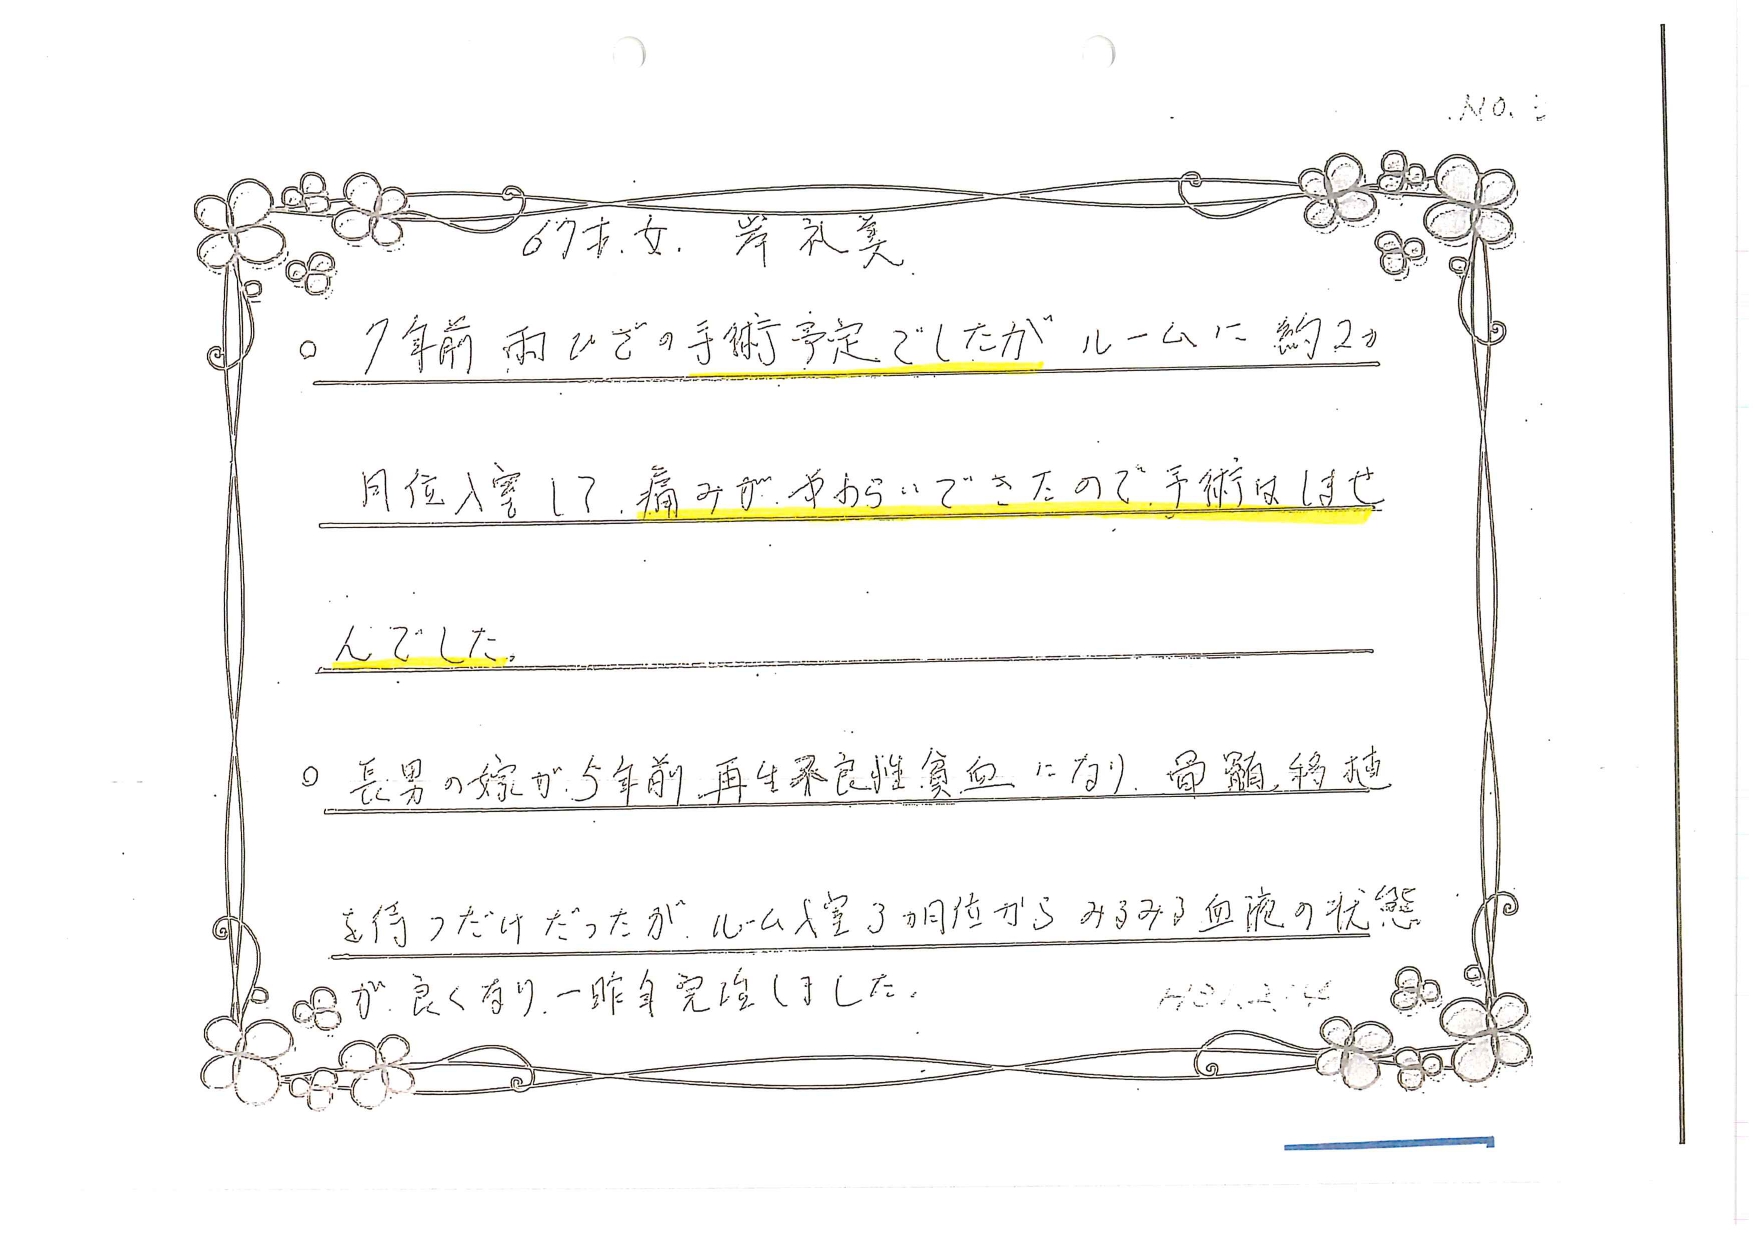 NO.
67才.女. 岸礼美
○ 7年前 両ひざの手術予定でしたが ルームに 約2カ
月位入室して.痛みが.やわらいできたので.手術はしませ
んでした。
○ 長男の嫁が.5年前.再生不良性貧血になり.骨髄移植
を待つだけだったが.ルーム入室3カ月位からみるみる血液の状態
が良くなり.一昨年完治しました.
H31.2.14